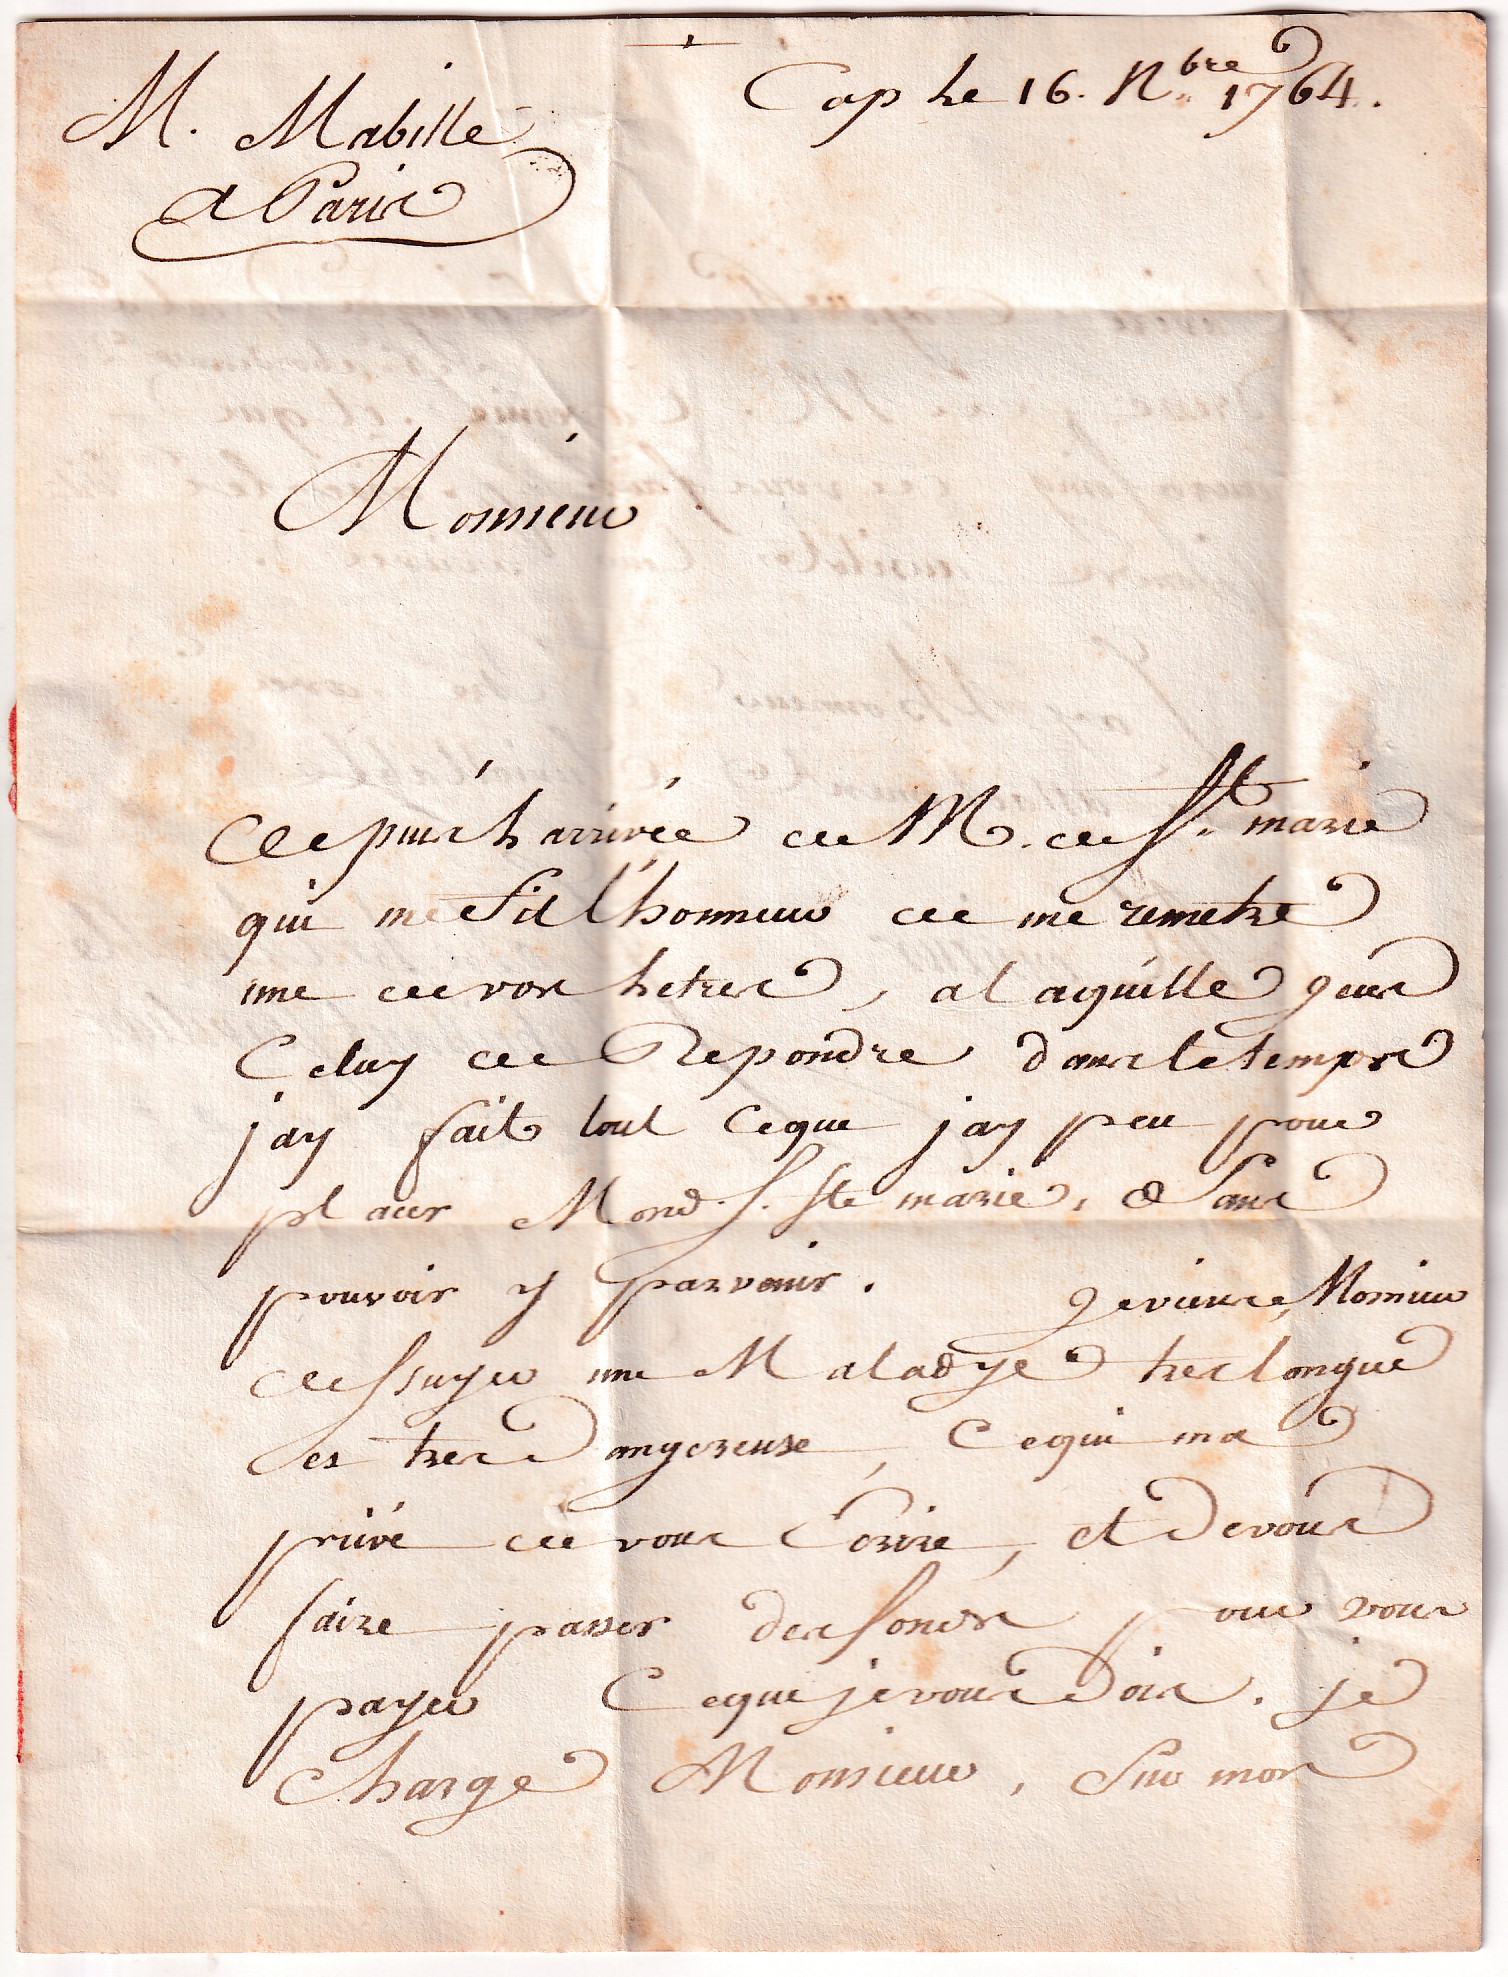 M. Mabille
a Paris
Cap le 16. Nbre 1764.
Monsieur
Depuis larrivée de M. de Ste marie
qui me fit l'honneur de me remetre
une de vos letres, a laquelle jeus
Celuy de Repondre dans le temps
jay fait tout Ceque jay peu pour
placer Mond. S. Ste marie, & Sans
pouvoir y parvenir. jeviens, Monsieur
dessuyer une Maladye tres longue
et tres Dangereuse, Cequi ma
privé de vous Ecrire, et de vous
faire passer des fonds pour vous
payer Ceque je vous Dois. je
Charge Monsieur, Sur mon